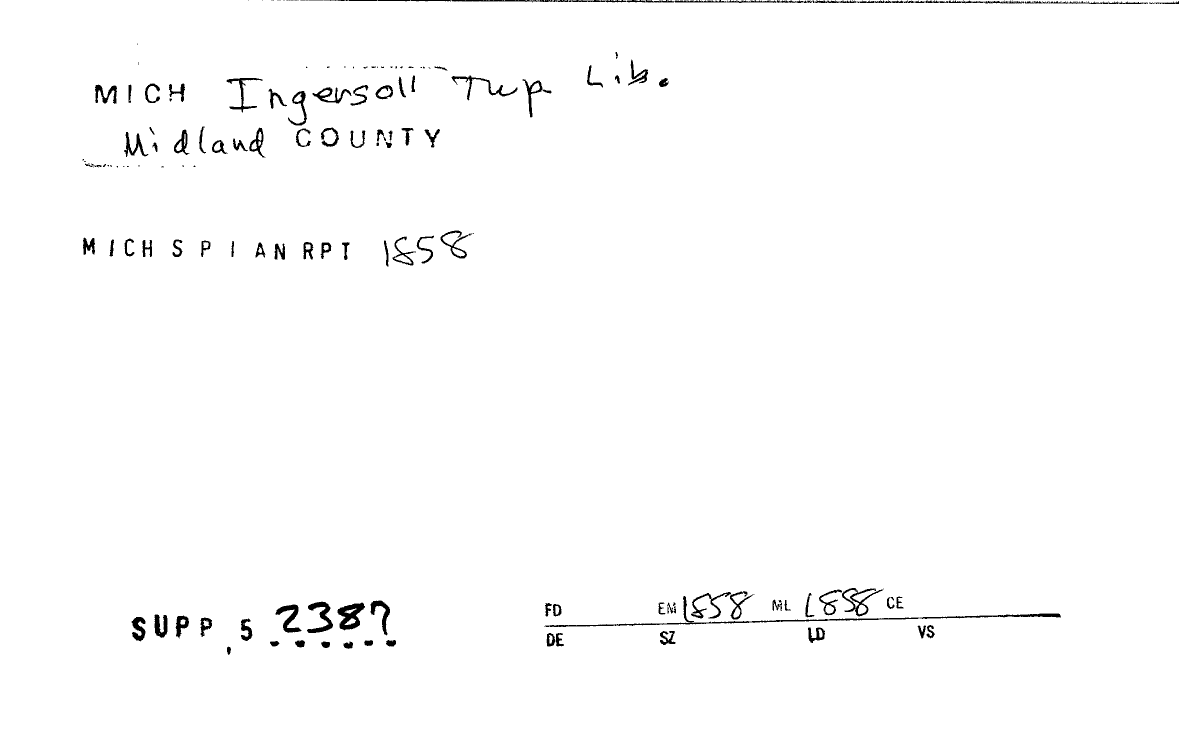 MICH Ingersoll Twp Lib.
Midland COUNTY
MICH S P I AN RPT 1858
SUPP, 5 2387
FD EM 1858 ML 1858 CE
DE SZ LD VS